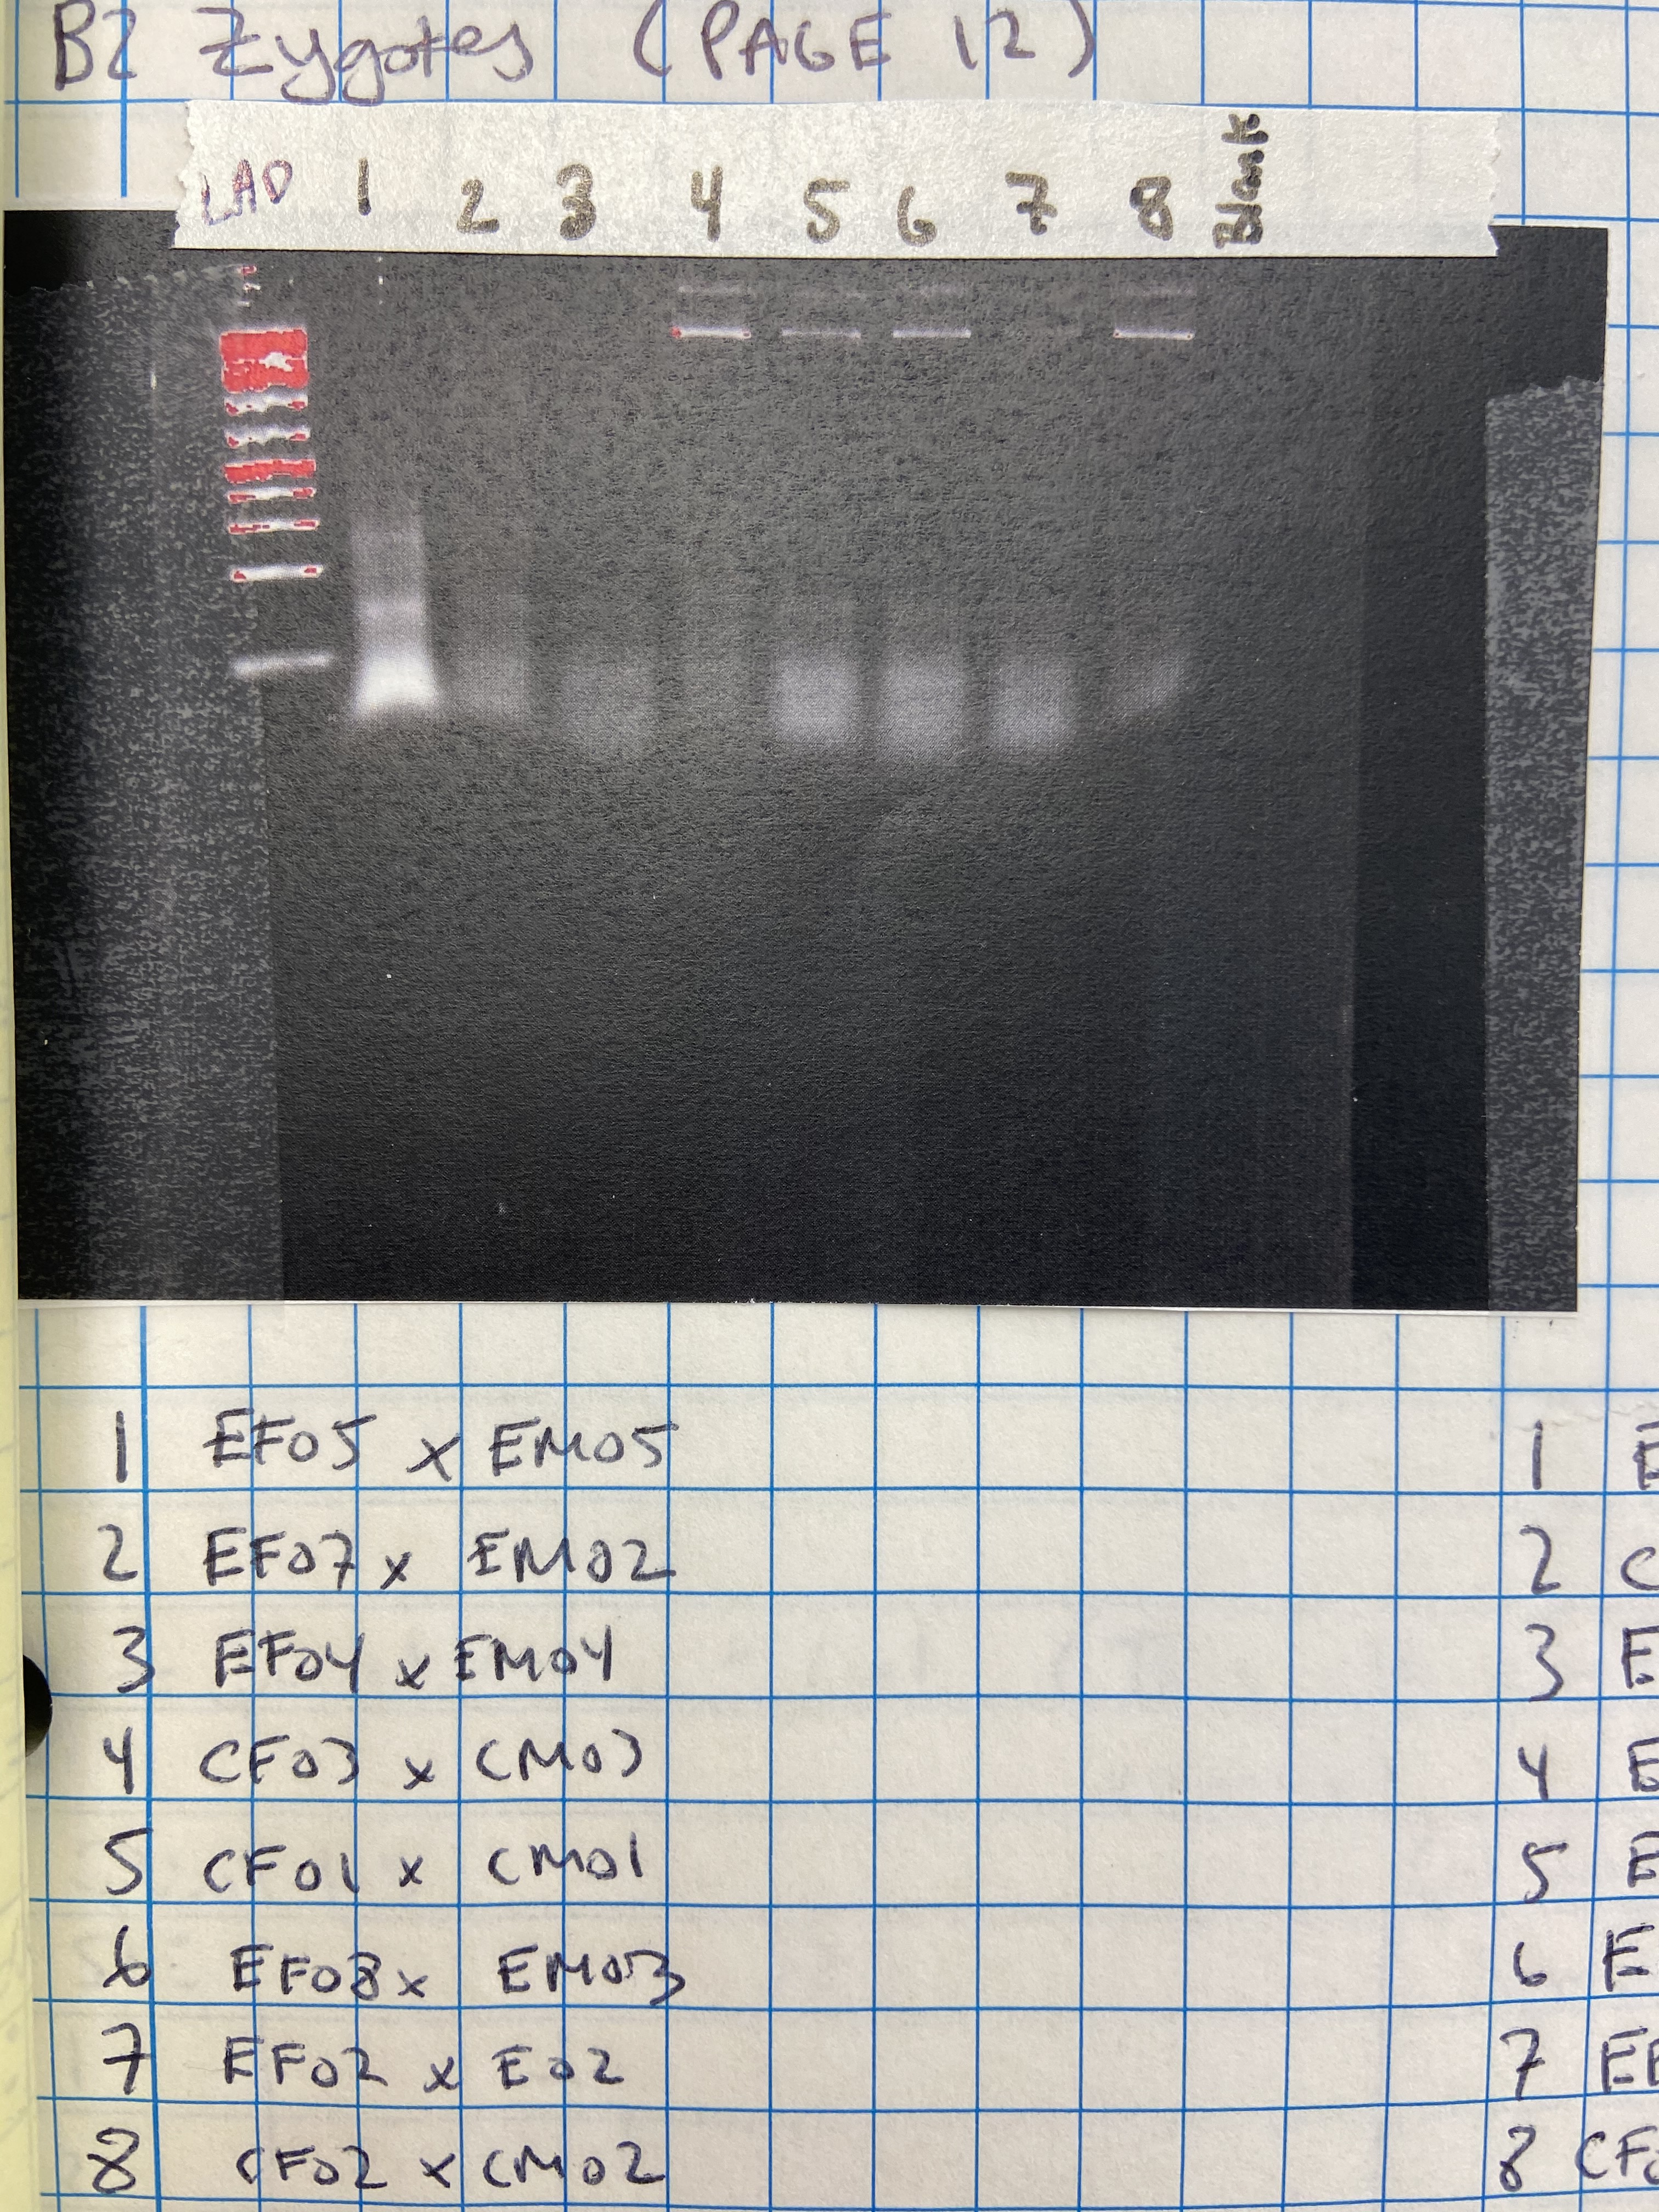 B2 Zygotes (PAGE 12)
LAD 1 2 3 4 5 6 7 8 Blank
1 EF05 x EM05
2 EF07 x EM02
3 EF04 x EM04
4 CF03 x CM03
5 CF01 x CM01
6 EF08 x EM03
7 EF02 x E02
8 CF02 x CM02
1 E
2 C
3 E
4 E
5 E
6 E
7 EF
8 CF0